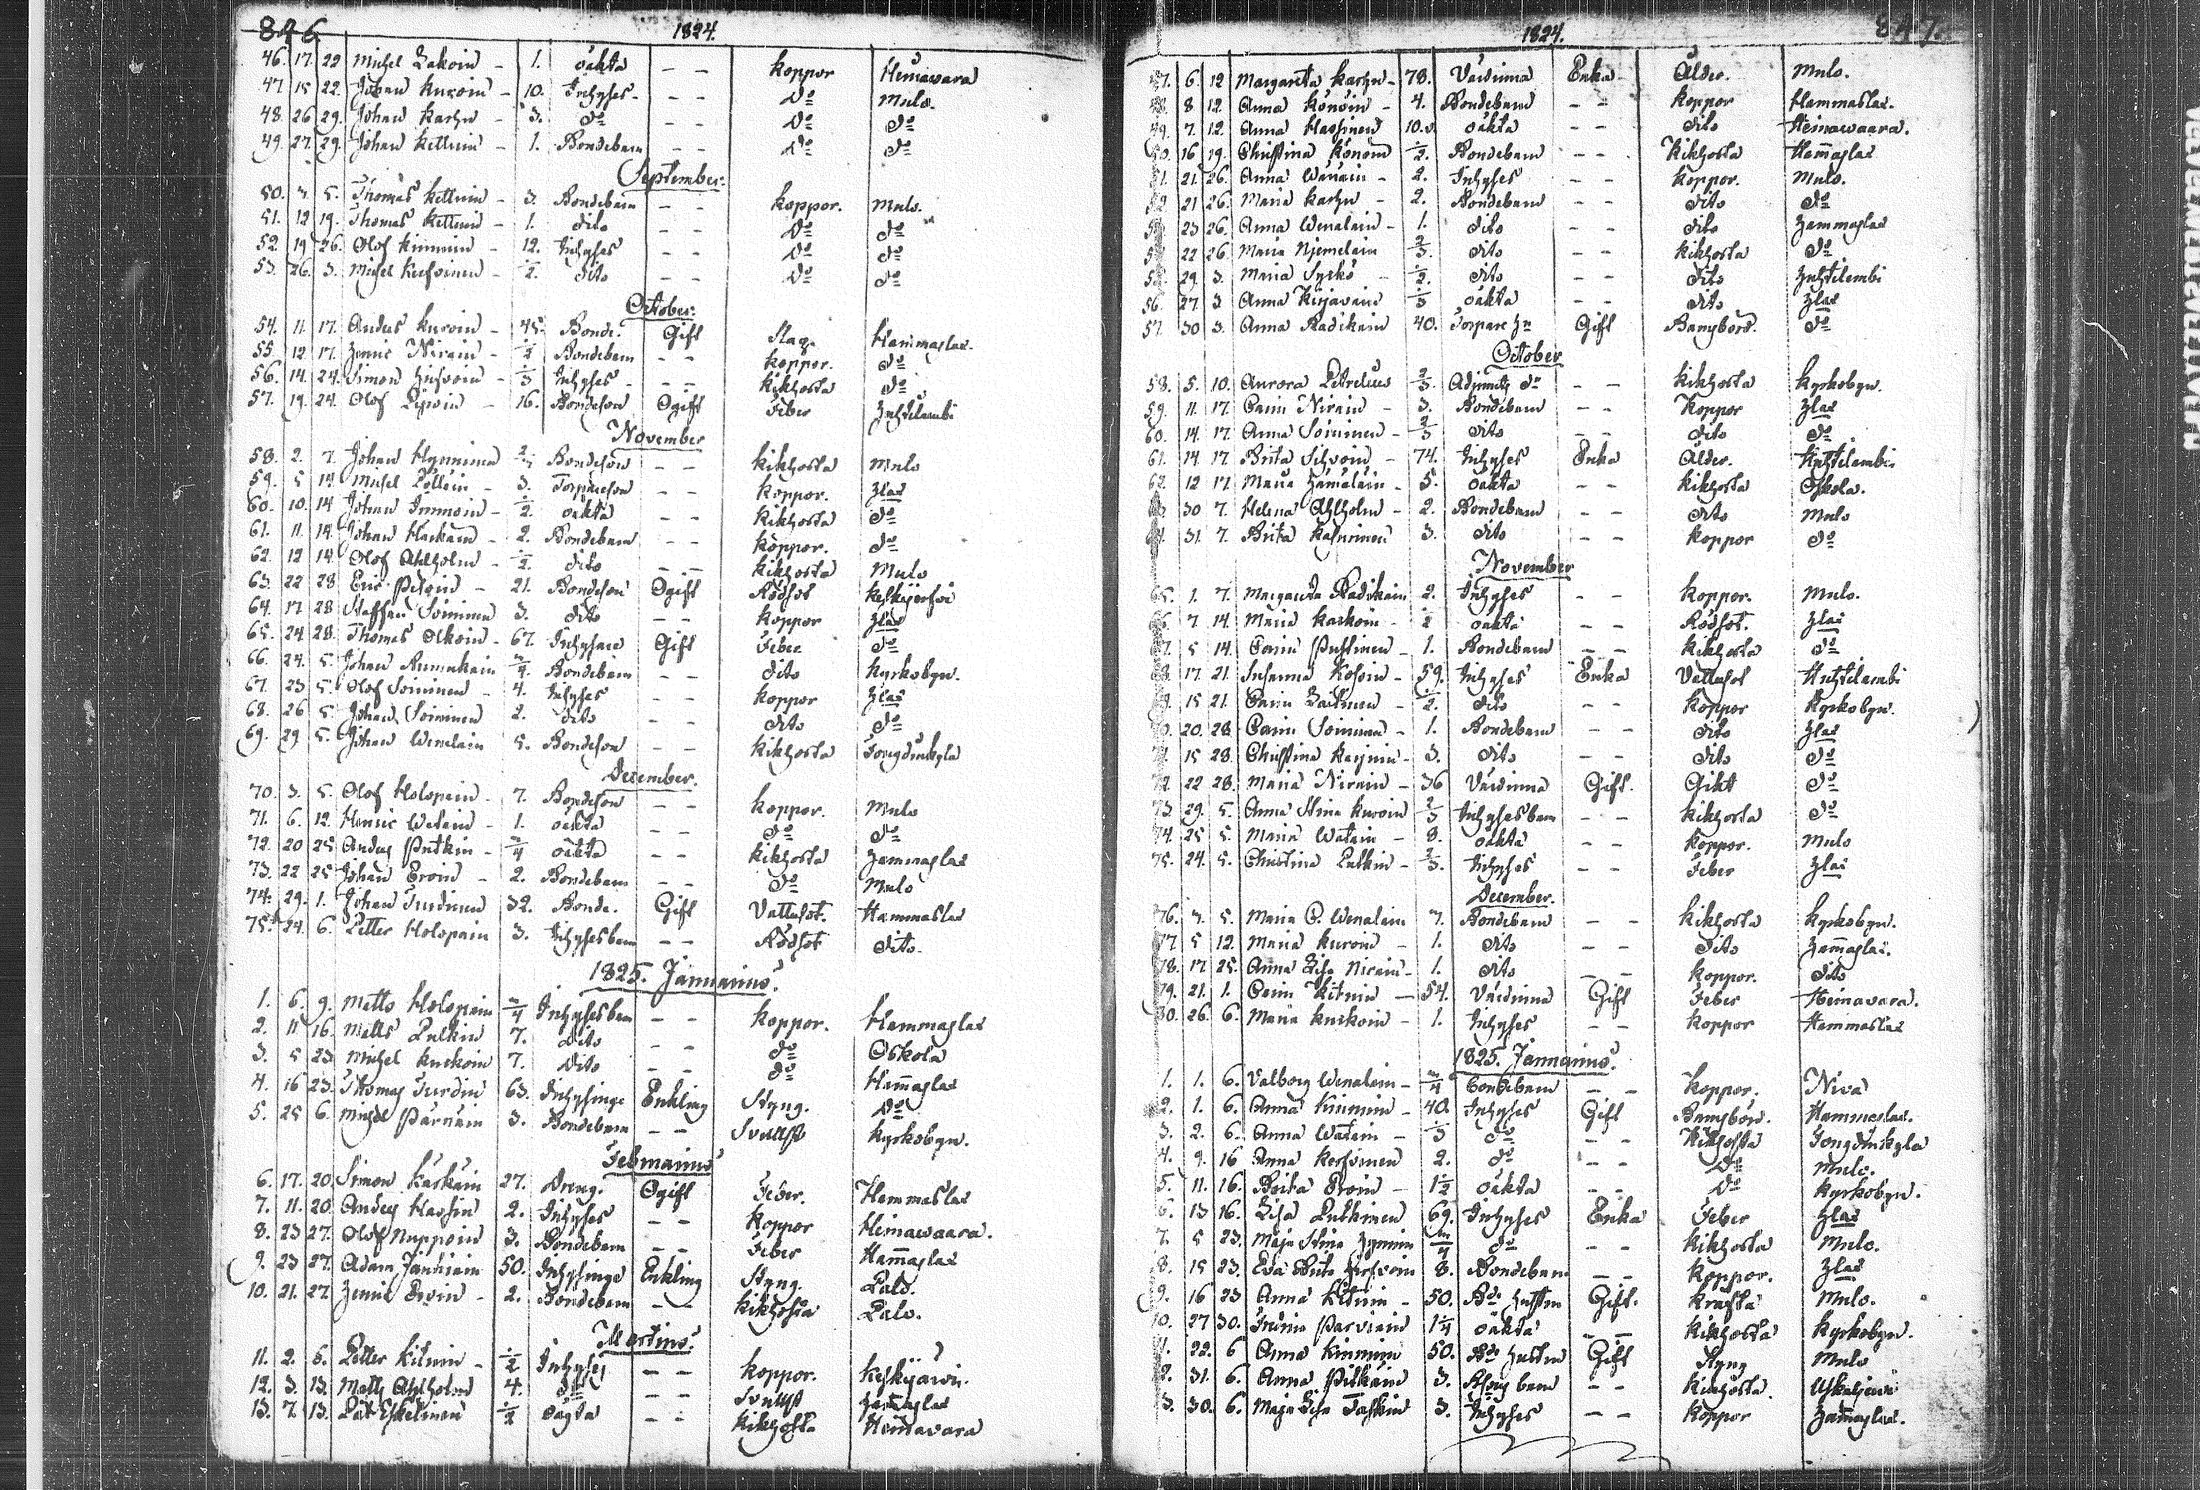 846.
1824.
46. 17. 22 Michel Zakoin - 1. oäkta - - koppor Heinäwara
47. 15 22. Johan Kuroin - 10. Inhyses - - - Do Mulo.
48. 26 29. Johan Karhu - 3. do - - Do do
49. 27. 29. Johan Kettuin - 1. Bondebarn - - Do do
September.
50. 3 5. Thomas Kettuin - 3. Bondebarn - - koppor. Mulo.
51. 12 19. Thomas Kettuin - 1. dito - - Do do
52. 19 26. Olof Kinnuin - 12. Inhyses - - Do do
53. 26. 3. Michel - 1/2. dito - - Do do
October.
54. 11. 17. Anders Kuroin - 45. Bonde. Gift Slag. Hammaslax.
55. 12 17. Henric Nirain - 1/2 Bondebarn - - koppor. do
56. 14. 24. Simon - 1/3 Inhyses - - - kikhosta do
57. 19. 24. Olof Piroin - 16. Bondeson Ogift Feber Huhtilambi
November
58. 2. 7. Johan Hynninen Bondeson - - kikhosta Mulo
59. 5 14 Michel Pöllain - 3. Torpareson - - koppor. Hlax
60. 10. 14 Johan Immoin - 1/2. oäkta - - kikhosta do
61. 11. 14. Johan - 2. Bondebarn - - koppor. do
62. 12 14. Olof Ahlholm - 1/2. dito - - kikhosta Mulo
63. 22 28 Eric - 21. Bondeson Ogift Rödsot Keskijerfvi
64. 17. 28 Staffan Soininen 3. dito - - koppor Hlax
65. 24. 28. Thomas - 67. Inhysare Gift Feber do
66. 24. 5. Johan 3/4. Bondebarn - - dito Kyrkobyn.
67. 23 5. Olof Soininen - 4. Inhyses - - koppor Hlax
68. 26 5. Johan Soininen 2. dito - - dito do
69. 29 5. Johan Wenelain 5. Bondeson - - kikhosta
December.
70. 3. 5. Olof Holopain - 7. Bondeson - - koppor. Mulo
71. 6. 12. Henric Watain - 1. oäkta - - do do
72. 20 25 Anders Putkin - 3/4 oäkta - - kikhosta Hammaslax
73. 22 25 Johan Eroin - 2. Bondebarn - - do Mulo
74. 29. 1. Johan Turdinen 32. Bonde. Gift Vattusot. Hammaslax
75. 24. 6. Petter Holopain 3. Inhysesbarn - - Rödsot dito.
1825. Januarius.
1. 6. 9. Matts Holopain 3/4 Inhysesbarn - - koppor. Hammaslax
2. 11 16. Matts Pulkin 7. Dito - - do Oskola
3. 5 23. Michel Kuskoin 7. Dito - - do Hammaslax
4. 16 23. Thomas Turdin 63. Inhysinge Enkling Styng. Do
5. 25 6. Michel Pärnäin 3. Bondebarn - - Svullst Kyrkobyn.
Februarius
6. 17. 20. Simon Kärkäin 27. Dreng. Ogift Feber. Hammaslax
7. 11. 20. Anders Hassin 2. Inhyses - - koppor Heinäwaara.
8. 23 27. Olof Nuppoin 3. Bondebarn - - Feber Hammaslax
9. 23 27. Adam 50. Inhysinge Enkling Styng. Palo.
10. 21. 27. Henric Eroin - 2. Bondebarn - - kikhosta Palo.
Martius.
11. 2. 6. Petter Kitunin - 1/2 Inhyses - - koppor. Keskijärvi.
12. 3. 13. Matts Ahlholm 4. do - - Svullst Hammaslax
13. 7. 13. Pål Eskelinen 1/2 oägta - - kikhosta Heinävara
1824.
847.
47. 6. 12 Margareta Karhu - 78. Värdinna Enka Ålder. Mulo.
48. 8 12. Anna Könöin - 4. Bondebarn - - koppor Hammaslax.
49. 7. 12. Anna Hassinen 10. oäkta - - dito Heinäwaara.
50. 16 19. Christina Könöin 1/2. Bondebarn - - kikhosta Hammaslax
51. 21. 26. Anna - 2. Inhyses - - koppor. Mulo.
52 21 26. Maria Karhu - 2. Bondebarn - - dito do
53 23 26. Anna Wenalain - 1. dito - - dito Hammaslax
54 22 26. Maria Njemelain 2/3. dito - - kikhosta do
55. 29 3. Maria Syrkö - 1/2. dito - - dito Huhtilambi
56. 27 3 Anna Kirjavain 1/3 oäkta - - dito Hlax
57. 30 3. Anna Radikain 40. Torpare Hu Gift Barnsbörd. do
October
58. 5. 10. Aurora Petrelius 2/3. Adjuncts dr - - kikhosta Kyrkobyn.
59. 11. 17. Carin Nirain - 3. Bondebarn - - Koppor Hlax
60. 14. 17. Anna Soininen - 2/3 dito - - dito do
61. 14 17. Brita - 74. Inhyses Enka Ålder. Huhtilambi
62. 12 17. Maria Hämäläin - 5. oäkta - - kikhosta Oskola.
63. 30 7. Helena Ahlholm - 2. Bondebarn - - dito Mulo
64. 31. 7. Brita Kasurinen 3. dito - - koppor do
November
65. 1. 7. Margareta Radikain 2. Inhyses - - koppor. Mulo.
66. 7 14. Maria - 1/2 oäkta - - Rödsot. Hlax
67. 5 14. Carin Pussinen - 1. Bondebarn - - kikhosta do
68. 17. 21. Susanna - 59. Inhyses Enka Vattusot Huhtilambi
69. 15 21. Carin - 1/2. dito - - koppor Kyrkobyn.
70. 20. 28. Carin Soininen - 1. Bondebarn - - dito Hlax
71. 15 28. Christina - 3. dito - - dito do
72. 22 28. Maria Nirain - 36 Värdinna Gift. Gikt do
73. 29. 5. Anna Stina Kuroin 2/3 Inhysesbarn - - kikhosta do
74. 25 5. Maria Watain - 8. oäkta - - koppor. Mulo
75. 24. 5. Christina Pulkin - 2/3. Inhyses - - Feber Hlax
December.
76. 3. 5. Maria C. Wenalain 7. Bondebarn - - kikhosta Kyrkobyn.
77. 5 12. Maria Kuroin - 1. dito - - dito Hammaslax.
78. 17 25. Anna Lisa Nirain - 1. dito - - koppor. dito
79. 21. 1. Carin Kitunin - 54. Värdinna Gift Feber Heinävara.
80. 26. 6. Maria Kuskoin - 1. Inhyses - - koppor Hammaslax
1825. Januarius.
1. 1. 6. Valborg Wenalain - 3/4 Bondebarn - - koppor. Niva
2. 1. 6. Anna Kinnuin - 40. Inhyses Gift Barnsbörd. Hammaslax.
3. 2. 6. Anna Watain - 1/3 do - - Kikhosta
4. 9. 16 Anna 2. do - - Do Mulo.
5. 11. 16. Brita Eroin - 1 1/2 oäkta - - Do Kyrkobyn.
6. 13 16. Lisa Pulkinen 69. Inhyses Enka Feber Hlax
7. 5 23. Maja Stina Hynnin 3/4 do - - kikhosta Mulo.
8. 15 23. Eva Brita 8. Bondebarn - - koppor. Hlax
9. 16 23 Anna Kitunin - 50. Bde Hustru Gift. kräfta Mulo.
10. 27 30. Parviain 1 1/4 oäkta - - kikhosta Kyrkobyn.
11. 22. 6 Anna Kinnunin 50. Bde Hustru Gift Styng Mulo
12. 31. 6. Anna Pitkäin 3. barn - - kikhosta.
13. 30. 6. Maja Lisa Taskin 3. Inhyses - - koppor Hammaslax.